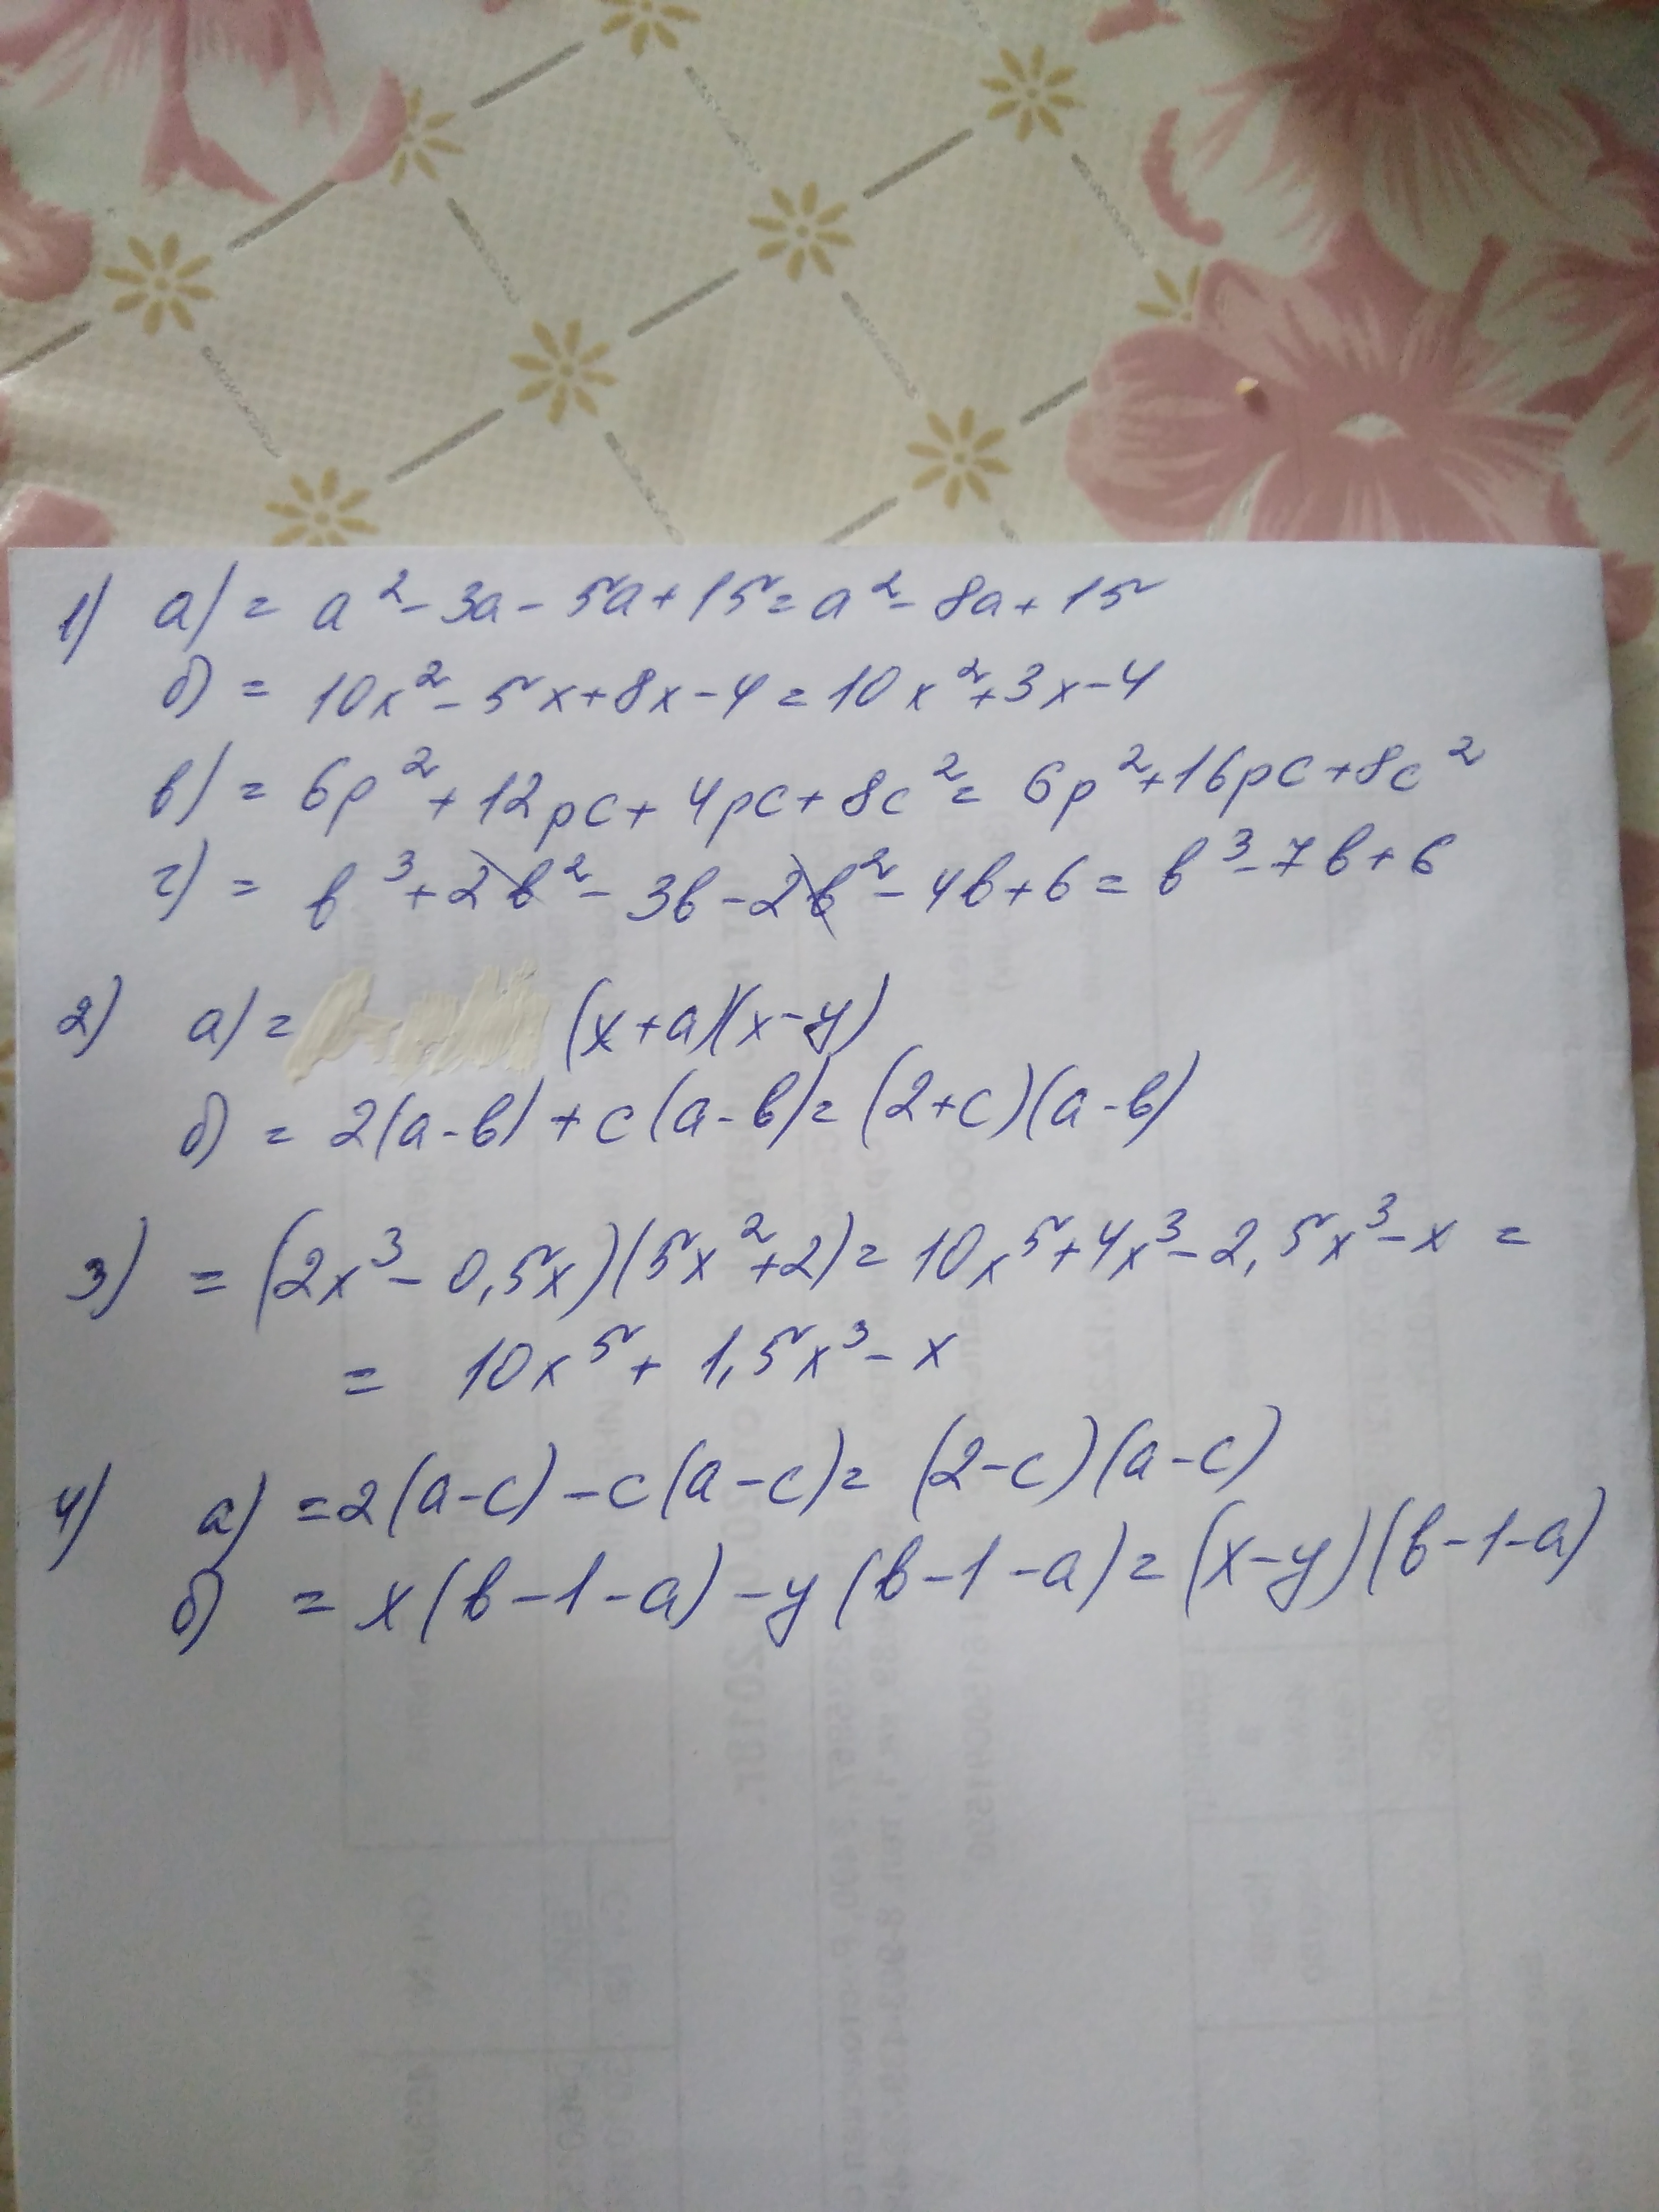 1) а) = a² - 3a - 5a + 15 = a² - 8a + 15
б) = 10x² - 5x + 8x - 4 = 10x² + 3x - 4
в) = 6p² + 12pc + 4pc + 8c² = 6p² + 16pc + 8c²
г) = b³ + 2b² - 3b - 2b² - 4b + 6 = b³ - 7b + 6
2) а) = (x + a)(x - y)
б) = 2(a - b) + c(a - b) = (2 + c)(a - b)
3) = (2x³ - 0,5x)(5x² + 2) = 10x⁵ + 4x³ - 2,5x³ - x =
= 10x⁵ + 1,5x³ - x
4) а) = 2(a - c) - c(a - c) = (2 - c)(a - c)
б) = x(b - 1 - a) - y(b - 1 - a) = (x - y)(b - 1 - a)